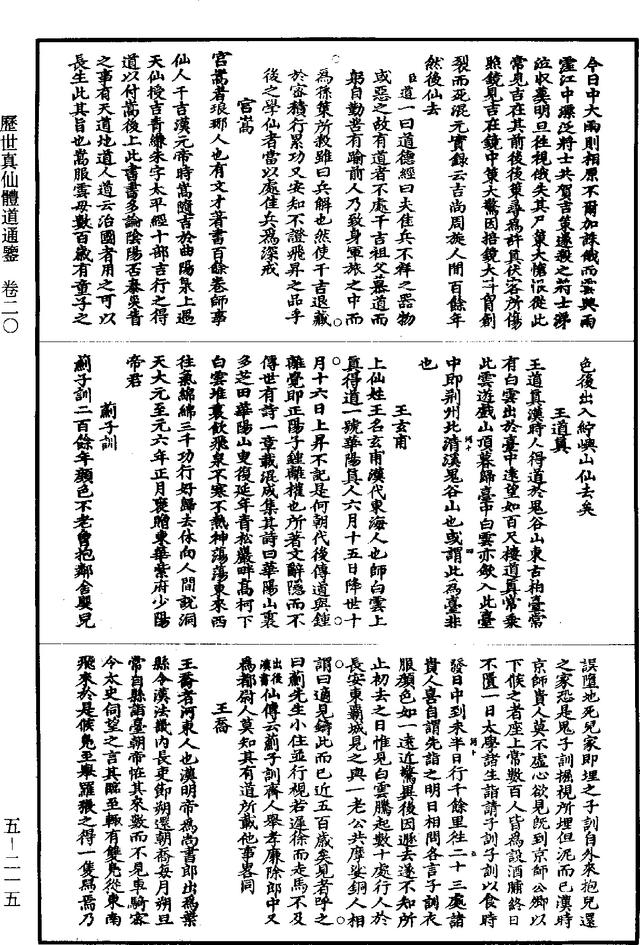 今日中大雨則相原不爾加誅俄而雲興雨
霪江中漂泛將士共賀吉策遂殺之將士涕
泣收葬明旦往視俄失其尸策大愴恨從此
常見吉在其前後後策尋為許貢伏客所傷
照鏡見吉在鏡中策大驚因掊鏡大叫胷創
裂而死混元實錄云吉尚周旋人間百餘年
然後仙去
臣道一曰道德經曰夫佳兵不祥之器物
或惡之故有道者不處干吉祖父慕道而
躬自勤苦有踰前人乃致身軍旅之中而
為孫策所殺雖曰兵解也然使干吉退藏
於密積行累功又安知不證飛昇之品乎
後之學仙者當以處佳兵為深戒
宮嵩
宮嵩者琅琊人也有文才著書百餘卷師事
仙人干吉漢元帝時嵩隨吉於曲陽泉上遇
天仙授吉青縑朱字太平經十部吉行之得
道以付嵩後上此書書多論陰陽否泰災眚
之事有天道地道人道云治國者用之可以
長生此其旨也嵩服雲母數百歲有童子之
色後出入紵嶼山仙去矣
王道真
王道真漢時人得道於鬼谷山東古柏臺常
有白雲出於臺中遠望如百尺樓道真常乘
此雲遊戲山頂暮歸臺中白雲亦斂入此臺
中即荊州北清溪鬼谷山也或謂此為臺非
也
王玄甫
上仙姓王名玄甫漢代東海人也師白雲上
真得道一號華陽真人六月十五日降世十
月十六日上昇不記是何朝代後傳道與鍾
離覺即正陽子鍾離權也所著文辭隱而不
傳世有詩一章載混成集其詩曰華陽山裏
多芝田華陽山叟復延年青松巖畔高柯下
白雲堆裏飲飛泉不寒不熱神蕩蕩東來西
往氣綿綿三千功行好歸去休向人間說洞
天大元至元六年正月褒贈東華紫府少陽
帝君
薊子訓
薊子訓二百餘年顏色不老曾抱鄰舍嬰兒
誤墮地死兒家即埋之子訓自外來抱兒還
之家恐是鬼子訓掘視所埋但泥而已漢時
京師貴人莫不虛心欲見既到京師公卿以
下候之者座上常數百人皆為設酒脯終日
不匱一日太學諸生詣請子訓子訓以食時
發日中到未半日行千餘里往二十三處諸
貴人喜自謂先詣之明日相問各言子訓衣
服顏色如一遠近驚異後因遁去遂不知所
止初去之日惟見白雲騰起數十處行人於
長安東霸城見之與一老公共摩挲銅人相
謂曰適見鑄此而已近五百歲矣見者呼之
曰薊先生小住並行視若遲徐而走馬不及
出後漢書仙傳云薊子訓齊人舉孝廉除郎中又
為都尉人莫知其有道所載他事畧同
王喬
王喬者河東人也漢明帝為尚書郎出為葉
縣令漢法畿內長吏節朔還朝喬每月朔旦
常自縣詣臺朝帝怪其來數而不見車騎密
令太史伺望之言其臨至輒有雙鳧從東南
飛來於是候鳧至舉羅張之得一隻舄焉乃
歷世真仙體道通鑑 卷二〇
五—二一五